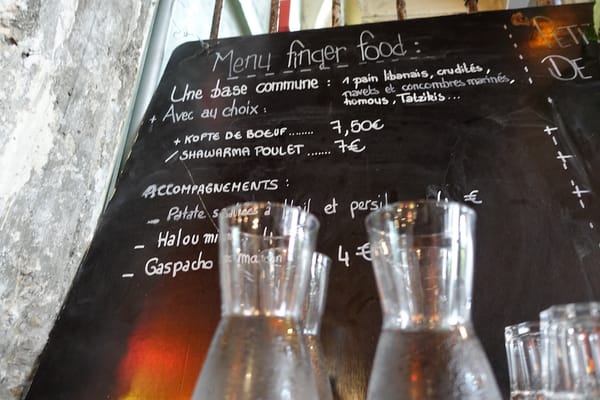 Menu finger food :
Une base commune : 1 pain libanais, crudités,
navets et concombres marinés,
homous, Tatzikis...
+ Avec au choix :
+ KOFTE DE BOEUF....... 7,50€
/ SHAWARMA POULET ....... 7€
ACCOMPAGNEMENTS :
- Patate à l'ail et persil €
- Haloumi
- Gaspacho maison 4€
PETIT
DE
+
+
+
+